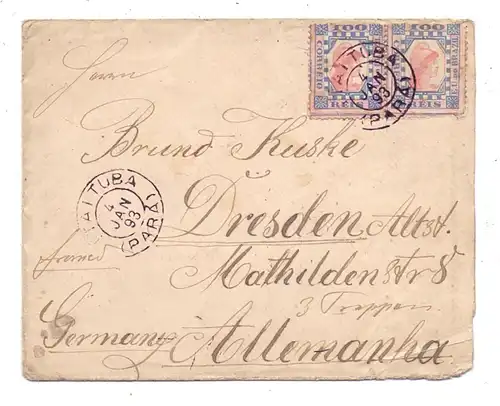 100 100
CORREIO
REIS REIS
AITUBA
4
JAN
93
(PARÁ)
Herrn
Bruno Kuske
AITUBA
4
JAN
93
(PARÁ)
Dresden Altst.
Mathildenstr 8
3 Treppen
Germany Allemanha